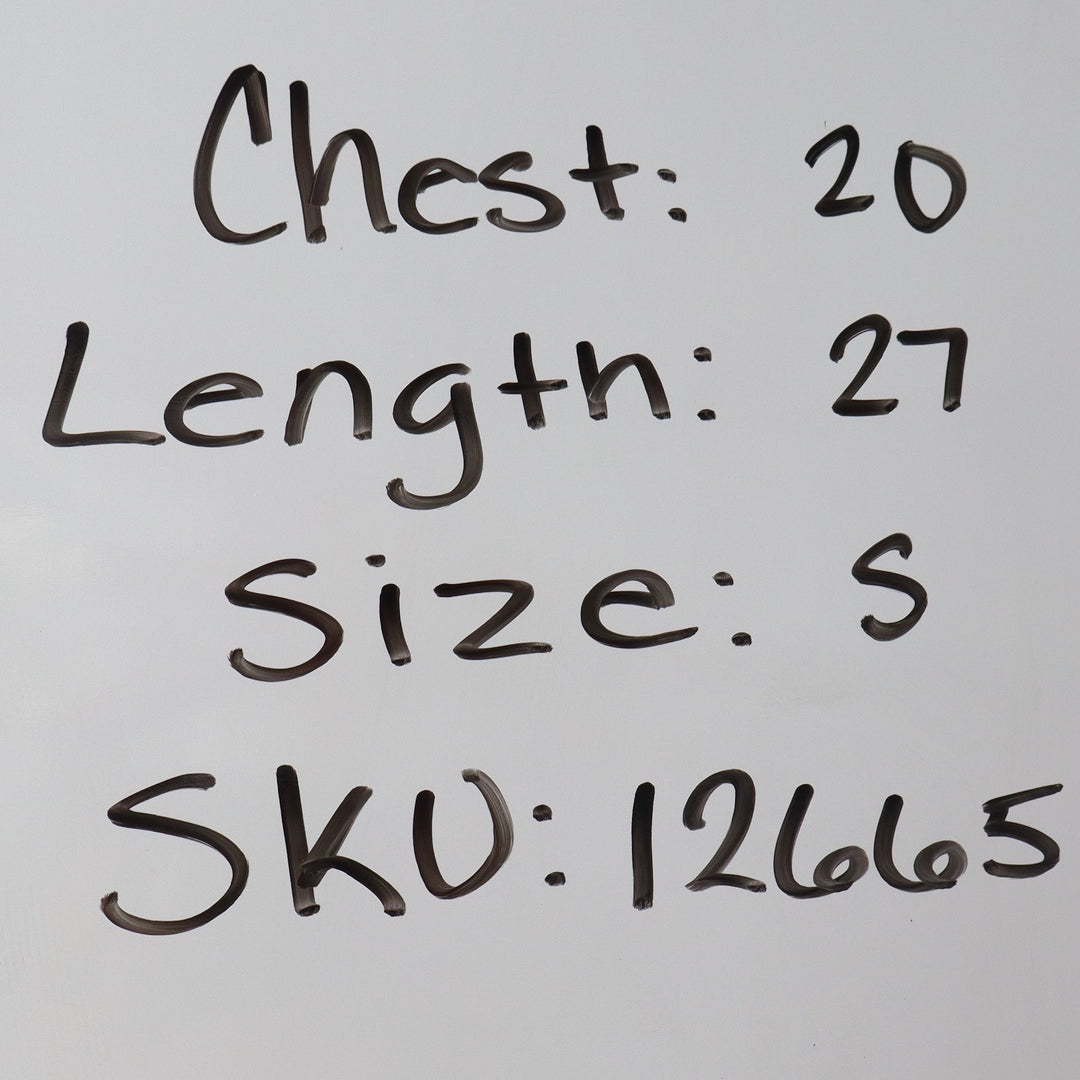 Chest: 20
Length: 27
Size: S
SKU: 12665